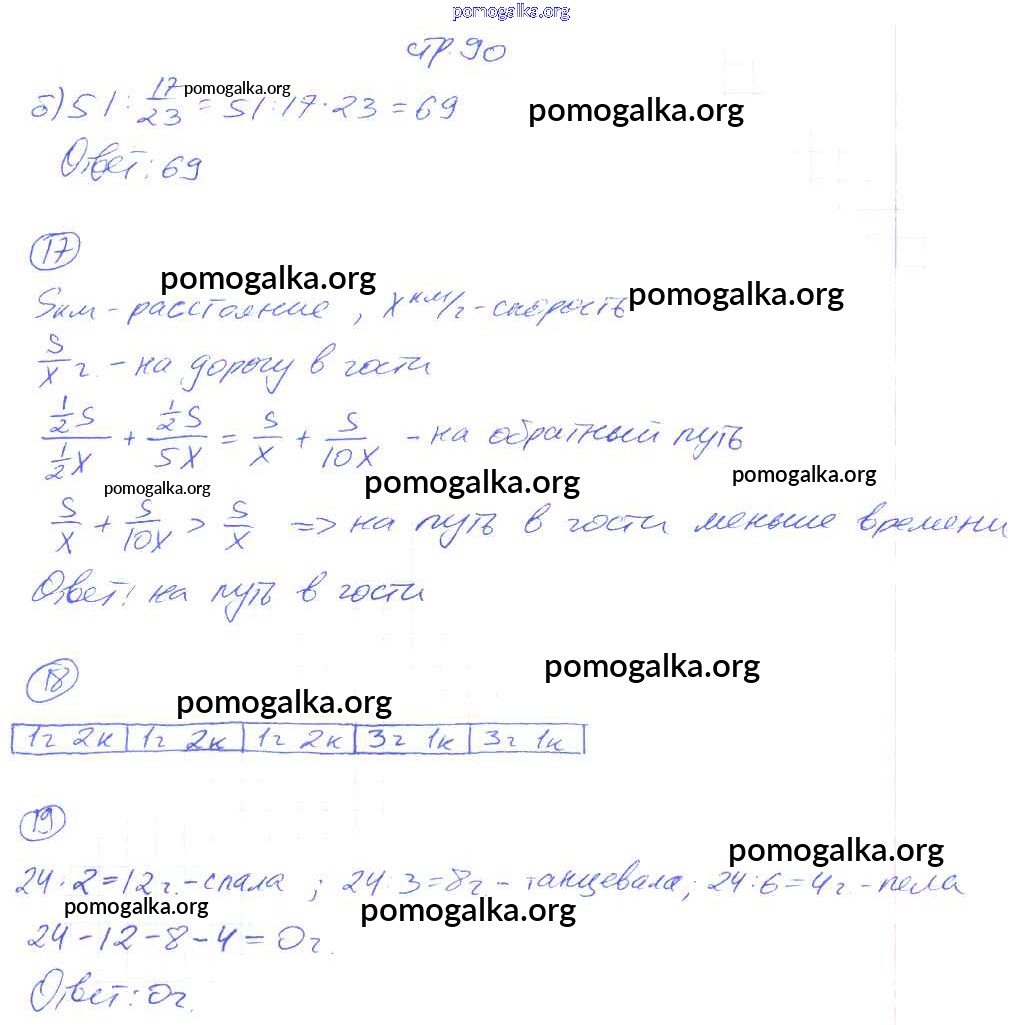 pomogalka.org
стр. 90
б) 51 : 17/23 = 51 : 17 · 23 = 69
pomogalka.org
pomogalka.org
Ответ: 69
17
pomogalka.org
pomogalka.org
Sкм - расстояние , x км/г - скорость
S/x г. - на дорогу в гости
½S/½x + ½S/5x = S/x + S/10x - на обратный путь
pomogalka.org
pomogalka.org
pomogalka.org
S/x + S/10x > S/x => на путь в гости меньше времени
Ответ: на путь в гости
pomogalka.org
18
pomogalka.org
1г 2к 1г 2к 1г 2к 3г 1к 3г 1к
19
pomogalka.org
24 : 2 = 12 г. - спала ; 24 : 3 = 8 г - танцевала ; 24 : 6 = 4 г. - пела
pomogalka.org
pomogalka.org
24 - 12 - 8 - 4 = 0 г.
Ответ: 0г.